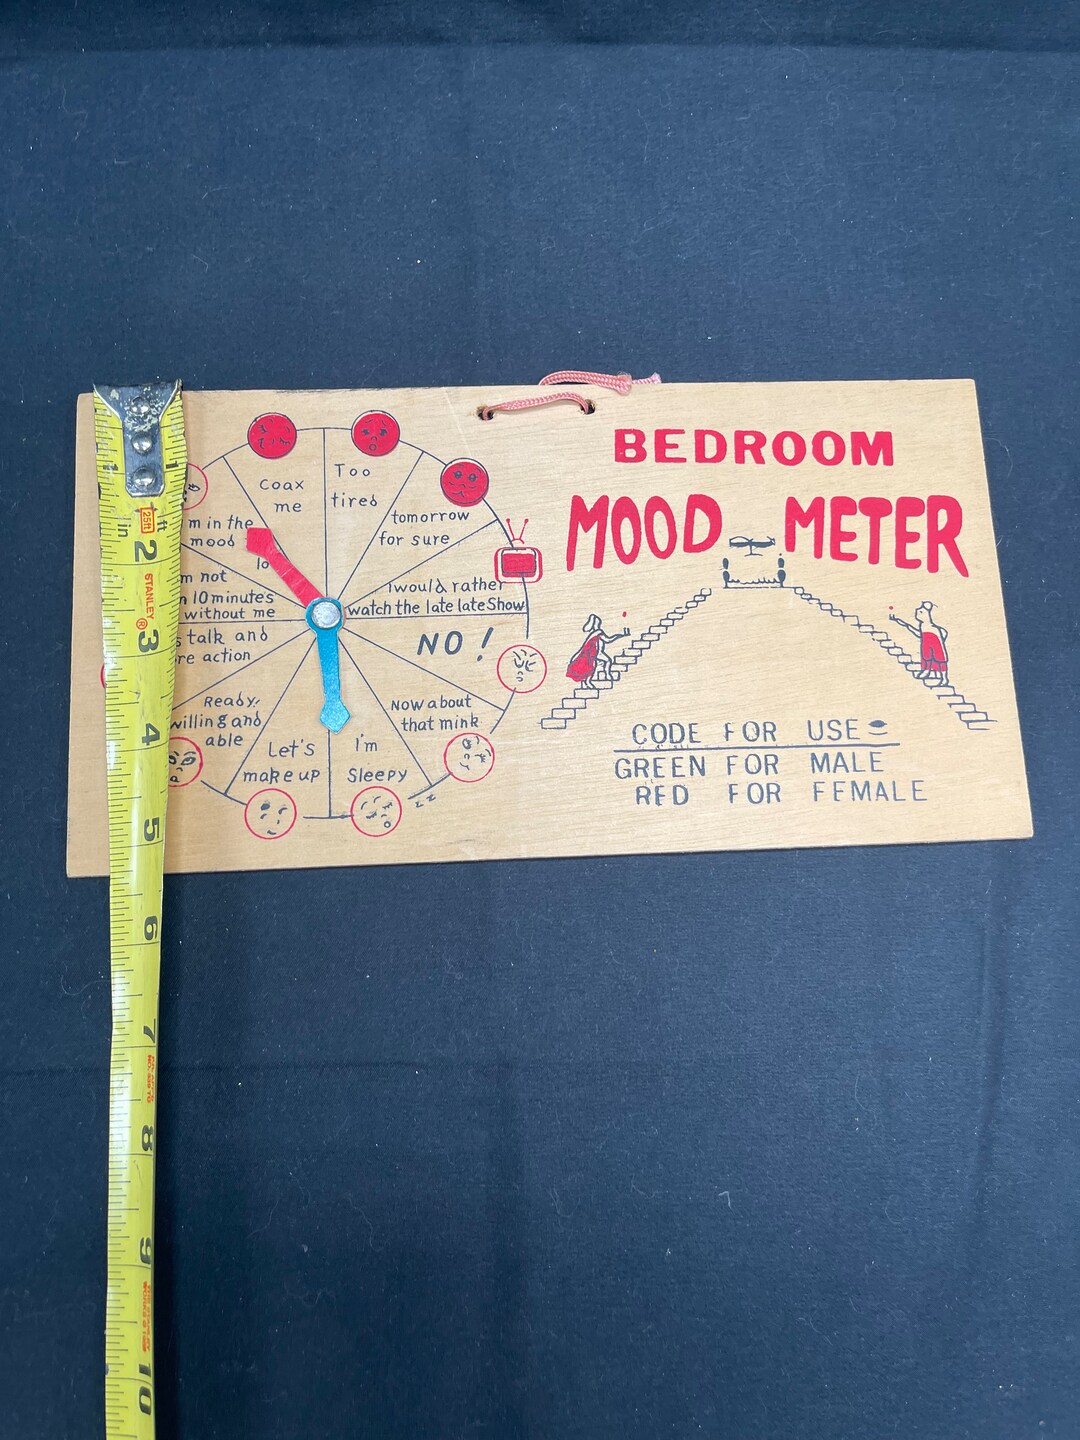 BEDROOM
MOOD METER
CODE FOR USE
GREEN FOR MALE
RED FOR FEMALE
Too
tired
tomorrow
for sure
I would rather
watch the late late Show
NO!
Now about
that mink
I'm
Sleepy
zz
Let's
make up
Ready,
willing and
able
talk and
action
m not
10 minutes
without me
m in the
mood
Coax
me
1
1
25ft
ft
in
2
STANLEY®
3
4
5
6
7
8
9
10